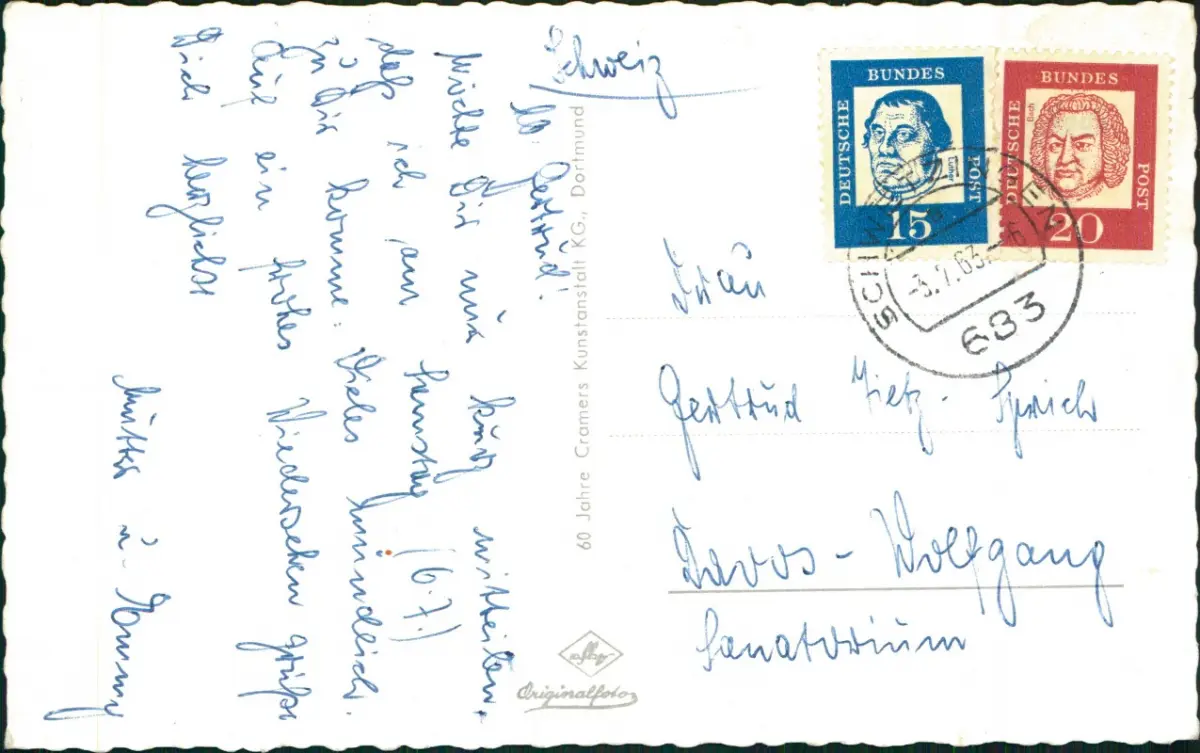 Lb. Gertrud!
Möchte Dir nur kurz mitteilen,
daß ich am Samstag (6.7.)
zu Dir komme. Vieles mündlich.
Auf ein frohes Wiedersehen grüßt
Dich herzlichst
Mutter u.
60 Jahre Cramers Kunstanstalt KG., Dortmund
Originalfoto
Schweiz
DEUTSCHE BUNDES POST
Luther
15
DEUTSCHE BUNDES POST
Bach
20
-3.7.63.-6
683
Frau
Gertrud
Davos - Wolfgang
Sanatorium